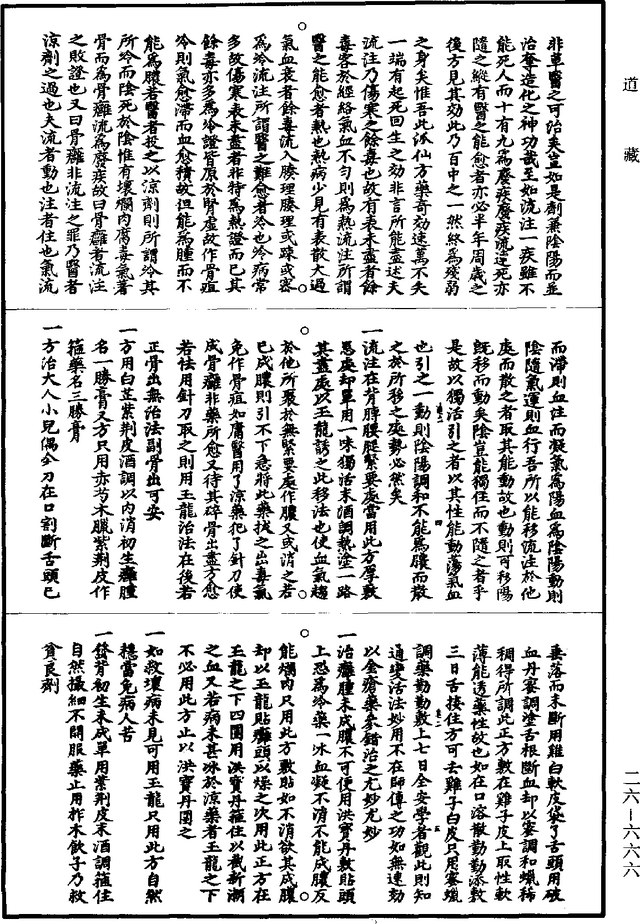 道藏
非草醫之可治矣豈如是劑兼陰陽而並
治奪造化之神功哉至如流注一疾雖不
能死人而十有九為廢疾廢疾流連死亦
隨之縱有醫之能愈者亦必半年周歲之
後方見其効此乃百中之一然終為殘弱
之身矣惟吾此派仙方藥奇効速萬不失
一端有起死回生之効非言所能盡述夫
流注乃傷寒之餘毒也故有表未盡者餘
毒客於經絡氣血不勻則為熱流注所謂
醫之能愈者熱也熱病少見有表散大過
氣血衰者餘毒流入腠理腠理或踈或密
為冷流注所謂醫之難愈者冷也冷病常
多故傷寒表未盡者非特為熱證而已其
餘毒亦多為冷證皆原於腎虛故作骨疽
冷則氣愈滯而血愈積故但能為腫而不
能為膿若醫者投之以涼劑則所謂冷其
所冷而陰死於陰惟有壞爛肉腐毒氣著
骨而為骨癰流為廢疾故曰骨癰者流注
之敗證也又曰骨癰非流注之罪乃醫者
涼劑之過也夫流者動也注者住也氣流
而滯則血注而凝氣為陽血為陰陽動則
陰隨氣運則血行吾所以能移流注於他
處而散之者取其能動故也動則可移陽
既移而動矣陰豈能獨住而不隨之者乎
是故以獨活引之者以其性能動蕩氣血
也引之一動則陰陽調和不能為膿而散
之於所移之處勢必然矣
一流注在背脾腰腿緊要處當用此方厚敷
患處却單用一味獨活末酒調熱塗一路
其盡處以玉龍誘之此移法也使血氣趨
於他所聚於無緊要處作膿又或消之若
已成膿則引不下急將此藥拔之出毒氣
免作骨疽如庸醫用了涼藥犯了針刀使
成骨癰非藥所愈又待其碎骨出盡方愈
若怯用針刀取之則用玉龍治法在後若
正骨出無治法副骨出可安
一方用白芷紫荆皮酒調以內消初生癰腫
名一勝膏又方只用赤芍木臘紫荆皮作
箍藥名三勝膏
一方治大人小兒偶含刀在口割斷舌頭已
垂落而未斷用雞白軟皮袋了舌頭用破
血丹蜜調塗舌根斷血却以蜜調和蠟稀
稠得所調此正方敷在雞子皮上取性軟
薄能透藥性故也如在口溶散勤勤添敷
三日舌接住方可去雞子白皮只用蜜蠟
調藥勤勤敷上七日全安學者觀此則知
通變活法妙用不在師傳之功如無速効
以金瘡藥參錯治之尤妙尤妙
一治癰腫未成膿不可便用洪寶丹敷貼頭
上恐為冷藥一冰血凝不消不能成膿反
能爛肉只用此方敷貼如不消欲其成膿
却以玉龍貼癰頭以燥之次用此正方在
玉龍之下四圍用洪寶丹箍住以截新潮
之血又若病未甚冰於涼藥者玉龍之下
不必用此方止以洪寶丹圍之
一如救壞病未見可用玉龍只用此方自然
穩當免病人苦
一發背初生未成單用紫荆皮末酒調箍住
自然撮細不開服藥止用柞木飲子乃救
貧良劑
二六—六六六